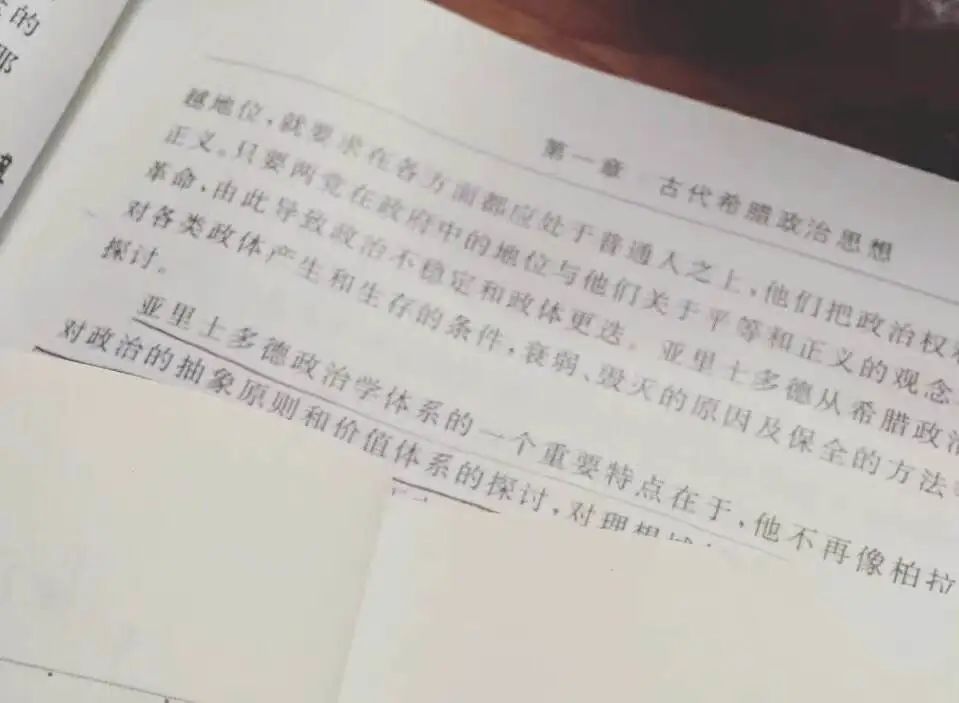 的
那
第一章 古代希腊政治思想
越地位，就要求在各方面都应处于普通人之上，他们把政治权
正义。只要两党在政府中的地位与他们关于平等和正义的观念
革命，由此导致政治不稳定和政体更迭。亚里士多德从希腊政治
对各类政体产生和生存的条件，衰弱、毁灭的原因及保全的方法
探讨。
亚里士多德政治学体系的一个重要特点在于，他不再像柏拉
对政治的抽象原则和价值体系的探讨，对理想